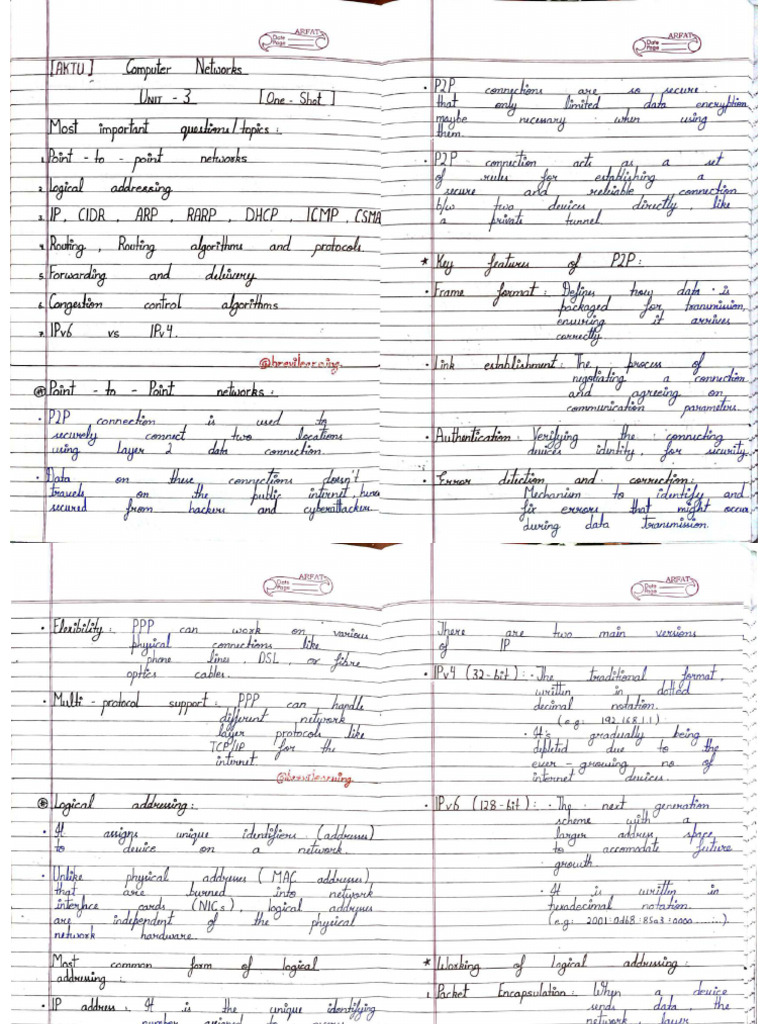 ARFAT
Date
Page
[AKTU] Computer Networks
UNIT - 3 [One - Shot]
Most important questions/topics :
1. Point - to - point networks
2. Logical addressing
3. IP, CIDR, ARP, RARP, DHCP, ICMP, CSMA
4. Routing, Routing algorithms and protocols.
5. Forwarding and delivery
6. Congestion control algorithms
7. IPv6 vs IPv4.
Point - to - Point networks :
• P2P connection is used to
securely connect two locations
using Layer 2 data connection.
• Data on these connections doesn't
travels on the public internet, hence
secured from hackers and cyberattacker
ARFAT
Date
Page
• P2P connections are so secure
that only limited data encryption
maybe necessary when using
them.
• P2P connection acts as a set
of rules for establishing a
secure and reliable connection
b/w two devices directly, like
a private tunnel.
* Key features of P2P :
• Frame format : Defines how data is
packaged for transmission,
ensuring it arrives
correctly.
• Link establishment : The process of
negotiating a connection
and agreeing on
communication parameters.
• Authentication : Verifying the connecting
devices identity, for security.
• Error detection and correction :
Mechanism to identify and
fix errors that might occur
during data transmission.
ARFAT
Date
Page
• Flexibility : PPP can work on various
physical connections like
phone lines, DSL, or fibre
optics cables.
• Multi - protocol support : PPP can handle
different network
layer protocols like
TCP/IP for the
internet.
Logical addressing :
• It assigns unique identifiers (addresses)
to device on a network.
• Unlike physical addresses (MAC addresses)
that are burned into network
interface cards (NICs), logical addresses
are independent of the physical
network hardware.
Most common form of logical
addressing :
• IP address : It is the unique identifying
number assigned to every
ARFAT
Date
Page
There are two main versions
of IP
• IPv4 (32-bit) : • The traditional format,
written in dotted
decimal notation.
(e.g: 192.168.1.1)
• It's gradually being
depleted due to the
ever - growing no of
internet devices.
• IPv6 (128-bit) : • The next generation
scheme with a
larger address space
to accomodate future
growth.
• It is written in
hexadecimal notation.
(e.g: 2001:0db8:85a3:0000.......).
* Working of Logical addressing :
1. Packet Encapsulation : When a device
sends data, the
network layer